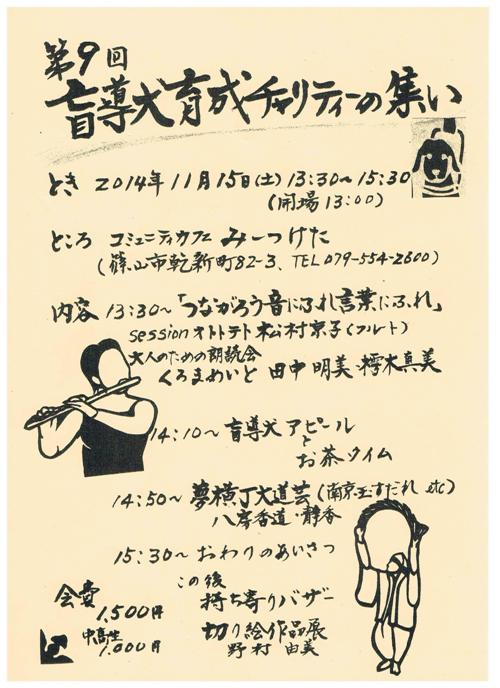 第9回
盲導犬育成チャリティーの集い
とき 2014年11月15日(土)13:30~15:30
(開場13:00)
ところ コミュニティカフェ みーつけた
(篠山市乾新町82-3、TEL079-554-2600)
内容 13:30~「つながろう音にふれ言葉にふれ」
session オトトテト 松村京子(フルート)
大人のための朗読会
くろまめいと 田中明美・樗木真美
14:10~盲導犬アピール
と
お茶タイム
14:50~ 夢横丁大道芸(南京玉すだれ etc)
八房香道・静香
15:30~おわりのあいさつ
この後
持ち寄りバザー
切り絵作品展
野村 由美
会費
1,500円
中高生
1,000円